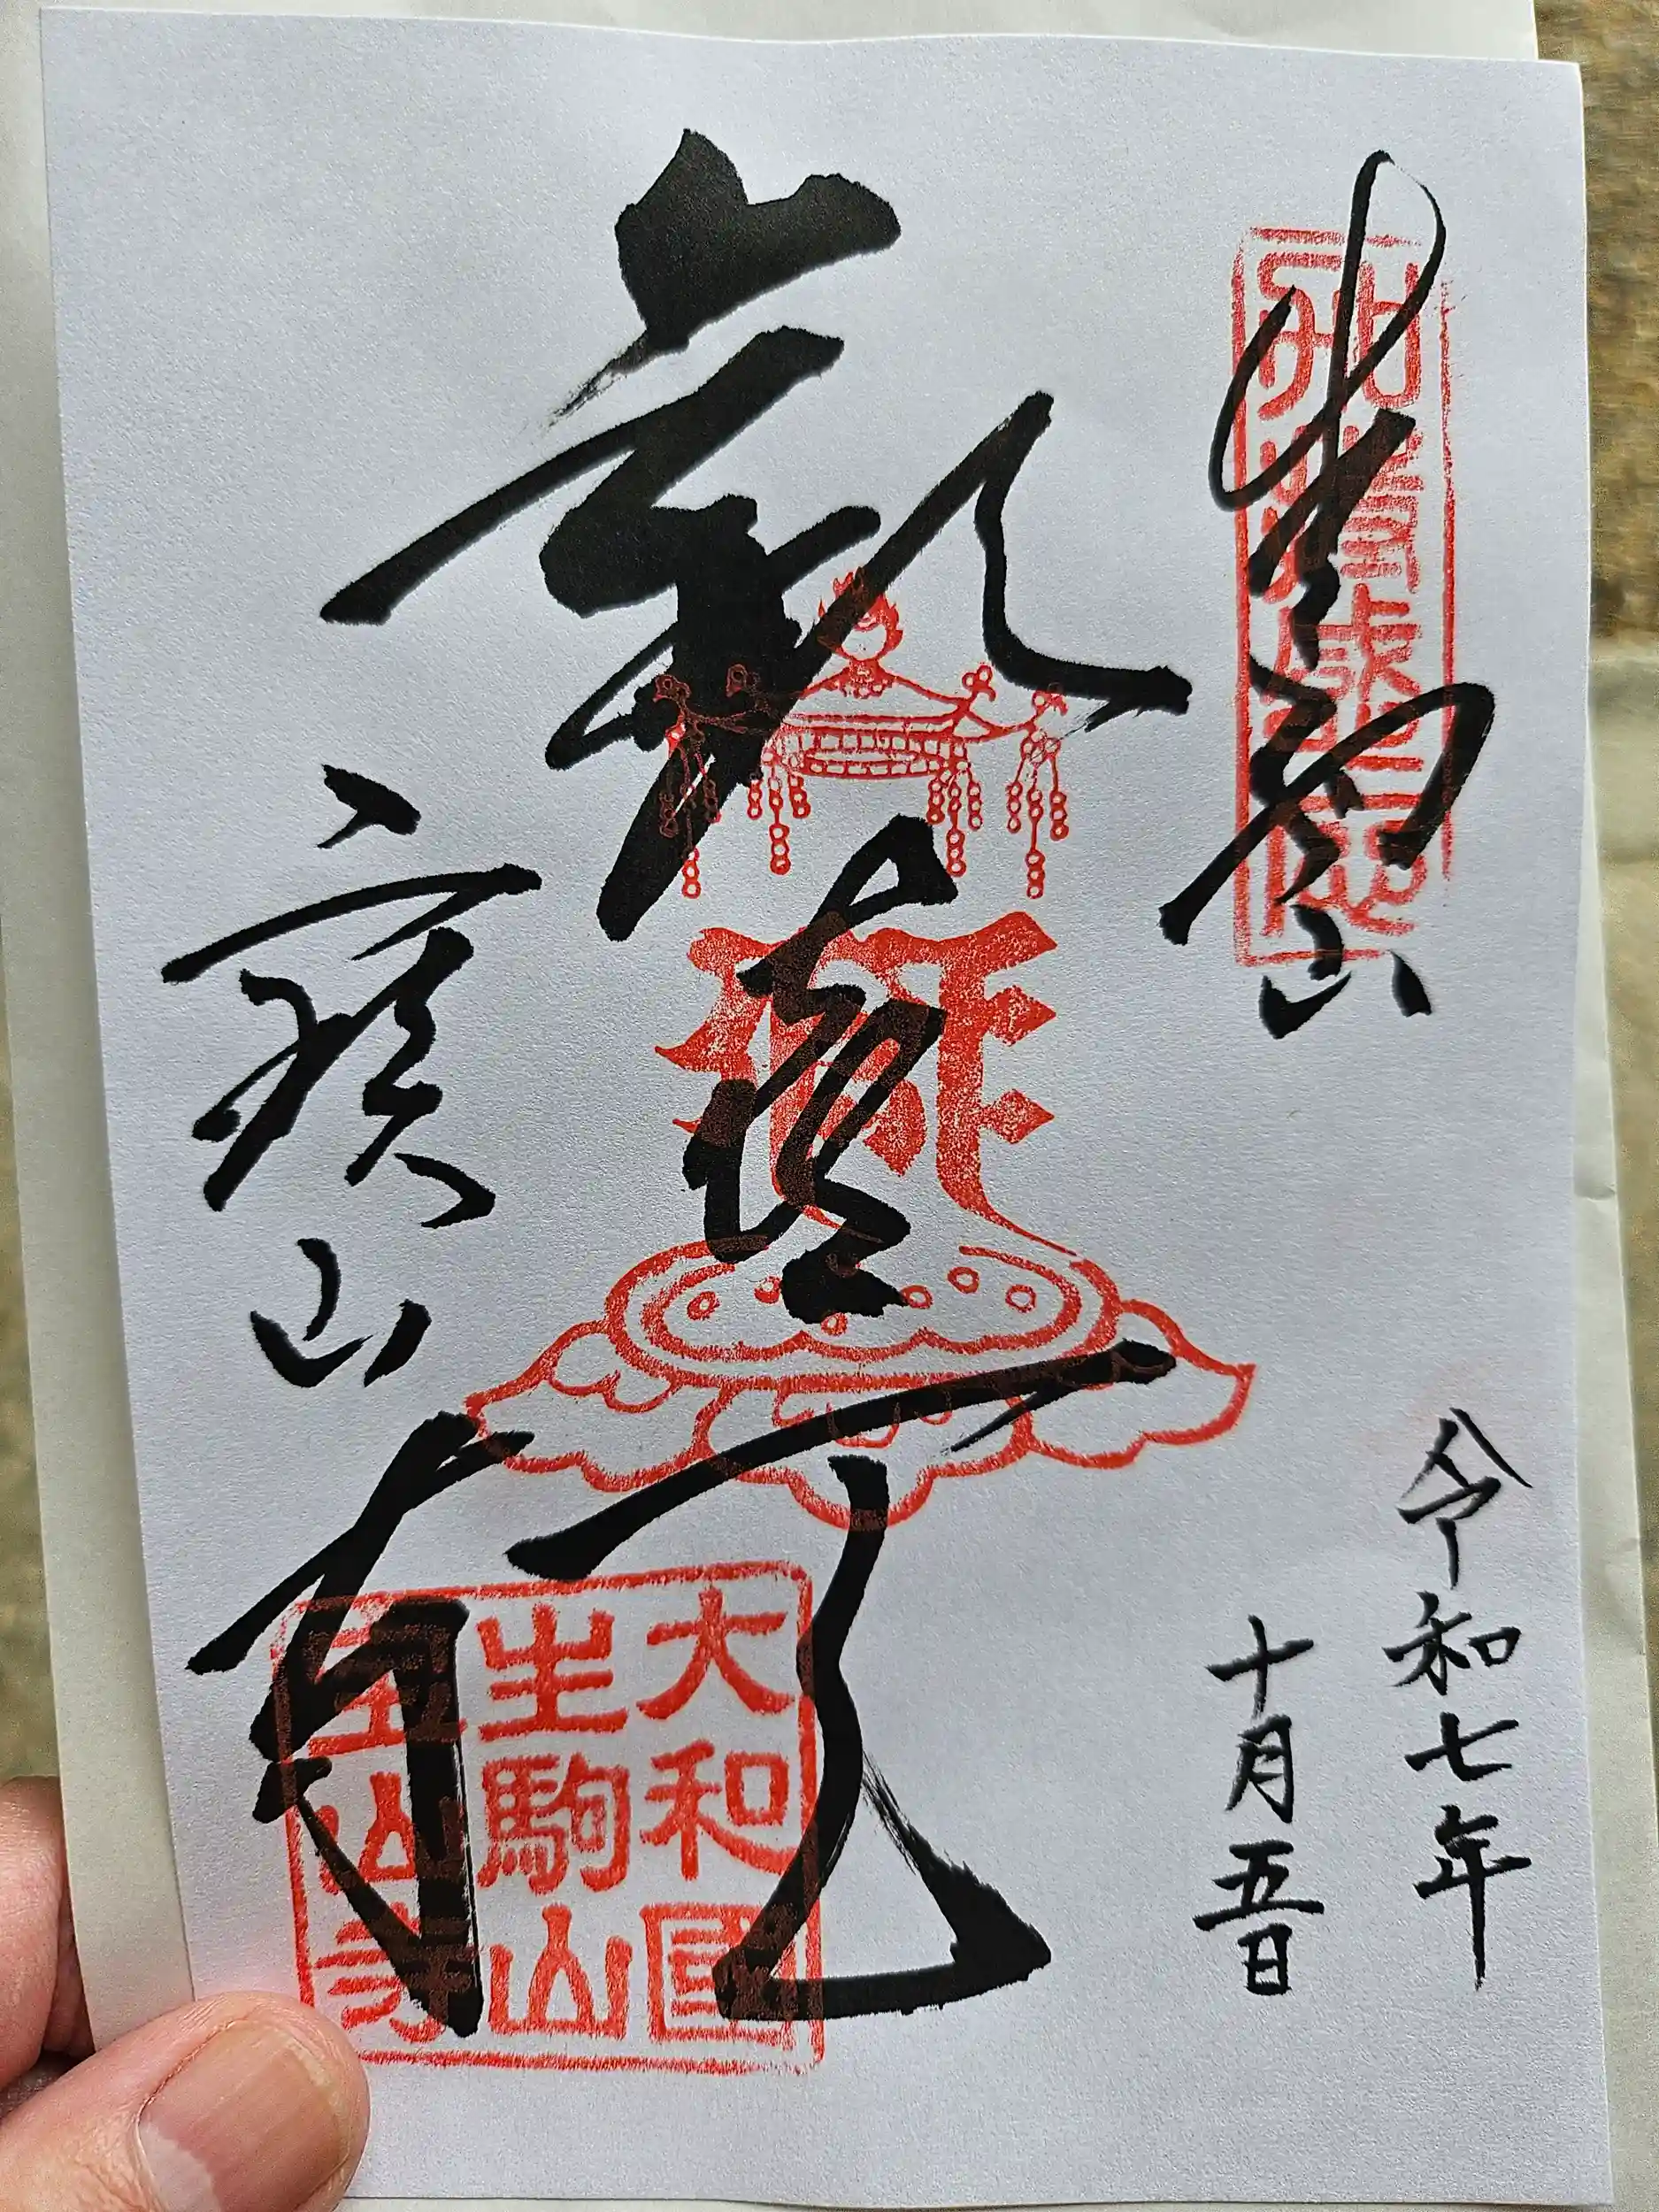 生駒山
歓喜天
寳山寺
令和七年
十月五日
大和國
生駒山
宝山寺